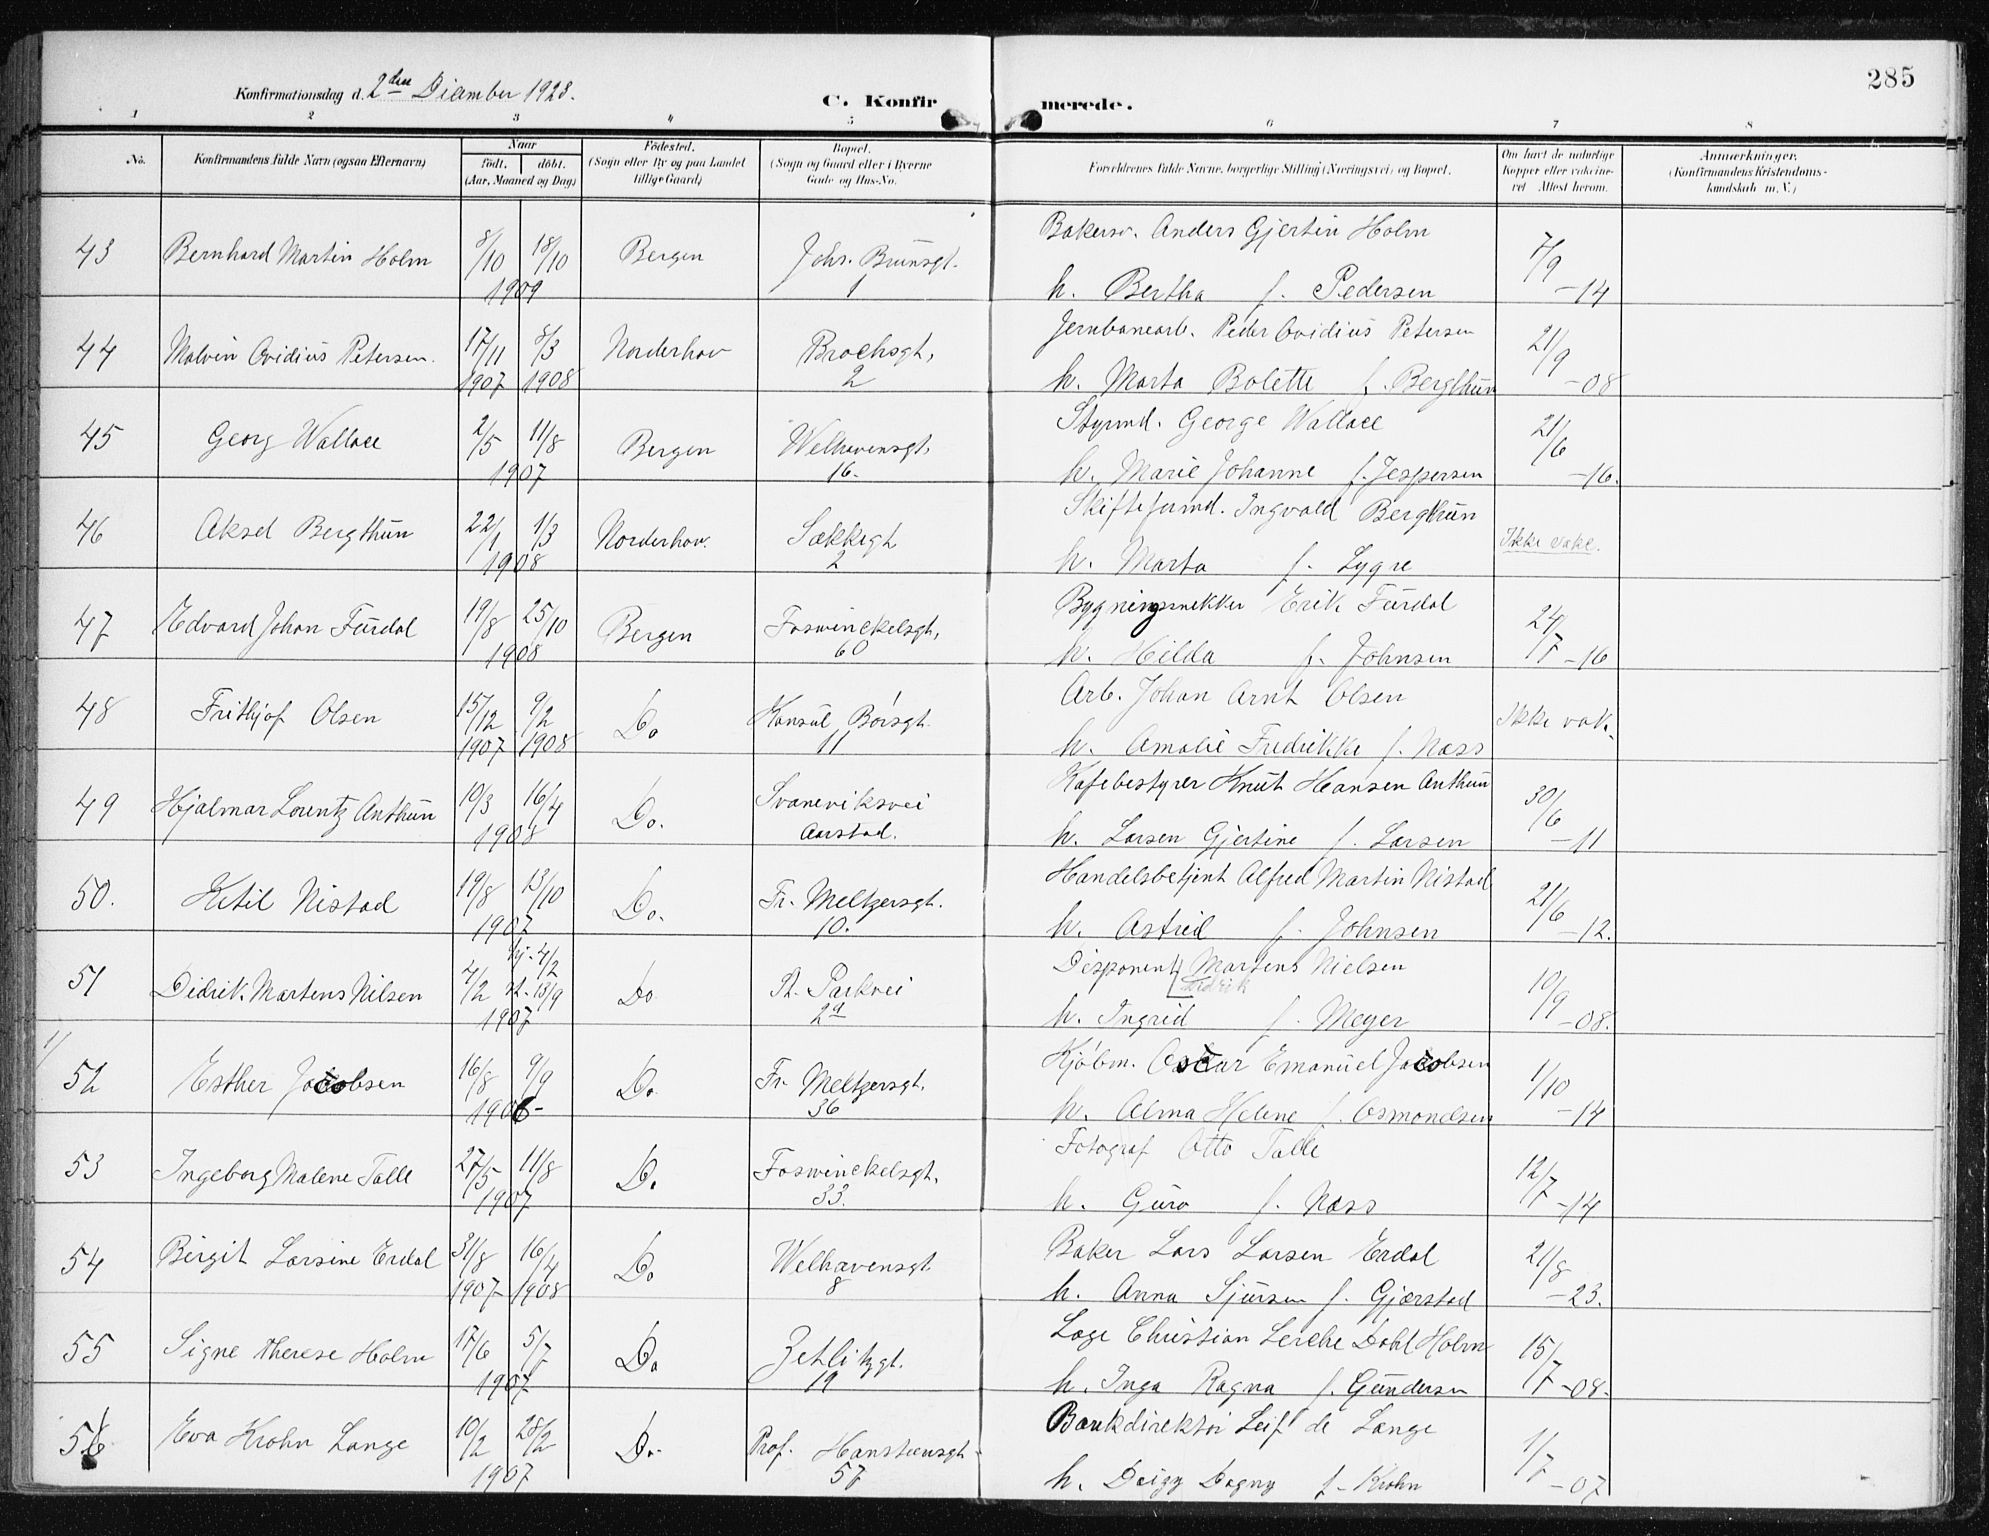 285
Konfirmationsdag d. 2den Dicember 1923.
C. Konfir merede.
1 2 3 4 5 6 7 8
No. Konfirmandens fulde Navn (ogsaa Efternavn) Naar født. døbt. (Aar, Maaned og Dag) Fødested. (Sogn eller By og paa Landet tillige Gaard) Bopæl. (Sogn og Gaard eller i Byerne Gade og Hus-No. Forældrenes fulde Navne, borgerlige Stilling (Næringsvei) og Bopæl. Om havt de naturlige Kopper eller vakcineret. Attest herom. Anmærkninger. (Konfirmandens Kristendomskundskab m. V.)
43 Bernhard Martin Holm 8/10 18/10 1909 Bergen Johs. Brunsgt. 1 Bakersv. Anders Gjertin Holm 7/9 -14
h. Bertha f. Pedersen
44 Malvin Ovidius Petersen. 17/11 1907 8/3 1908 Norderhov Brochsgt, 2 Jernbanearb. Peder Ovidius Petersen 21/9 -08
h. Marta Bolette f. Bergthun
45 Georg Wallace 2/5 11/8 1907 Bergen Welhavensgt. 16. Styrmd. George Wallace 21/6 -16.
h. Marie Johanne f. Jespersen
46 Aksel Bergthun 22/1 1/3 1908 Norderhov. Sækkegt 2 Skifteformd. Ingvald Bergthun Ikke vakc.
h. Marta f. Lygre
47 Edvard Johan Furdal 19/8 25/10 1908 Bergen Foswinckelsgt, 60 Bygningssnekker Erik Furdal 24/7 -16
h. Hilda f. Johnsen
48 Frithjof Olsen 15/12 1907 9/2 1908 Do Konsul Børsgt. 11 Arb. Johan Arnt Olsen Ikke vak.
h. Amalie Fredrikke f. Næss
49 Hjalmar Lorentz Anthun 10/3 16/4 1908 Do. Svaneviksvei Aarstad. Kafebestyrer Knut Hansen Anthun 30/6 -11
h. Larsen Gjertine f. Larsen
50. Ketil Nistad 19/8 13/10 1907 Do. Fr. Meltzersgt. 10. Handelsbetjent Alfred Martin Nistad 21/6 -12.
h. Astrid f. Johnsen
51 Didrik Martens Nilsen 4/2 hj. 4/2 st. 13/9 1907 Do St. Parkvei 2a Disponent Didrik Martens Nielsen 10/9 -08.
h. Ingrid f. Meyer
1/
52 Esther Jacobsen 16/8 9/9 1906- Do Fr. Meltzersgt. 36 Kjøbm. Oscar Emanuel Jacobsen 1/10 -14
h. Alma Helene f. Osmondsen
53 Ingeborg Malene Talle 27/5 11/8 1907 Do Foswinckelsgt. 33. Fotograf Otto Talle 12/7 -14
h. Guro f. Næss
54 Birgit Larsine Erdal 31/8 1907 16/4 1908 Do Welhavensgt. 8 Baker Lars Larsen Erdal 21/8 -23.
h. Anna Sjursen f. Gjærstad
55 Signe Therese Holm 17/6 5/7 1907 Do Zetlitzgt. 19 Læge Christian Lerche Dahl Holm 15/7 -08-
h. Inga Ragna f. Gundersen
56 Eva Krohn Lange 10/2 28/2 1907 Do. Prof. Hansteensgt. 57 Bankdirektør Leif de Lange 1/7 -07
h. Deizy Dagny f. Krohn